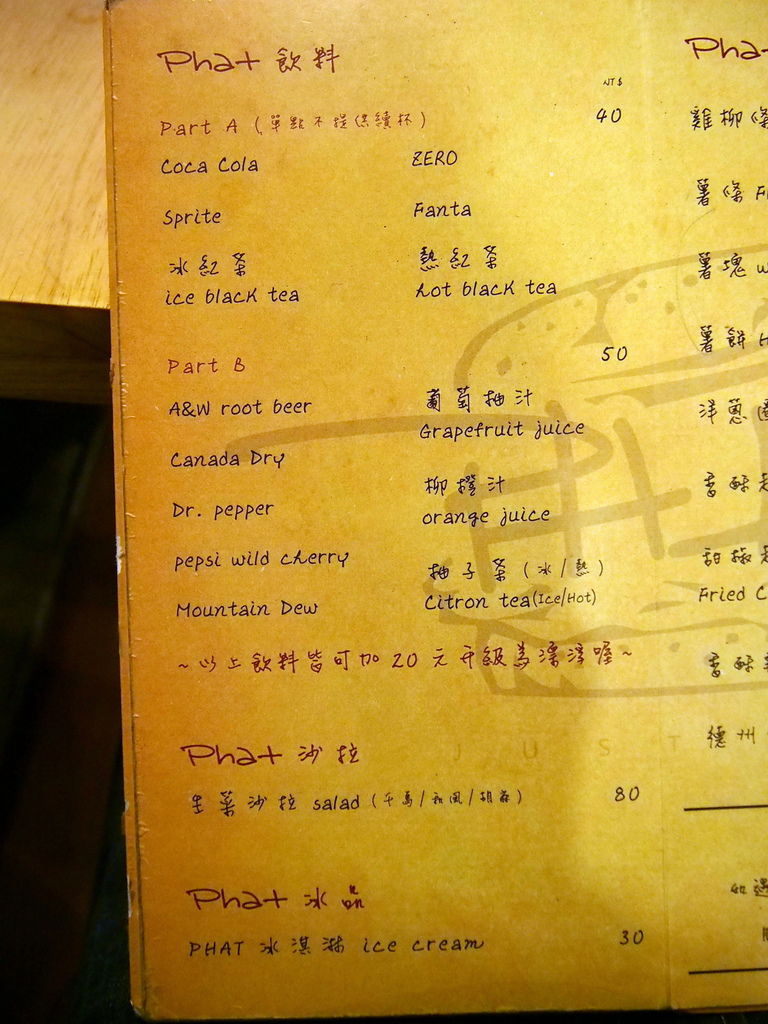 Phat 飲料
NT$
Part A (單點不提供續杯) 40
Coca Cola ZERO
Sprite Fanta
冰紅茶 熱紅茶
ice black tea hot black tea
Part B 50
A&W root beer 葡萄柚汁
Grapefruit juice
Canada Dry 柳橙汁
Dr. pepper orange juice
pepsi wild cherry 柚子茶 (冰/熱)
Mountain Dew Citron tea(Ice/Hot)
~以上飲料皆可加20元升級為漂浮喔~
Phat 沙拉
生菜沙拉 salad (千島/和風/胡麻) 80
Phat 冰品
PHAT 冰淇淋 ice cream 30
JUST
Pha
雞柳條
薯條 F
薯塊 w
薯餅 H
洋蔥圈
香酥
甜椒
Fried C
香酥
德州
如遇